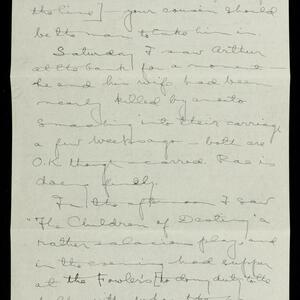 the time] your cousin should
be the man to take him in.
Saturday I saw Arthur
at the bank for a moment
he and his wife had been
nearly killed by an auto
smashing into their carriage
a few weeks ago – both are
O.K. though – scarred. Rae is
doing finely.
In the afternoon I saw
"The Children of Destiny" a
rather salacious play, and
in the evening had supper
at the Fowler's [to doing duty